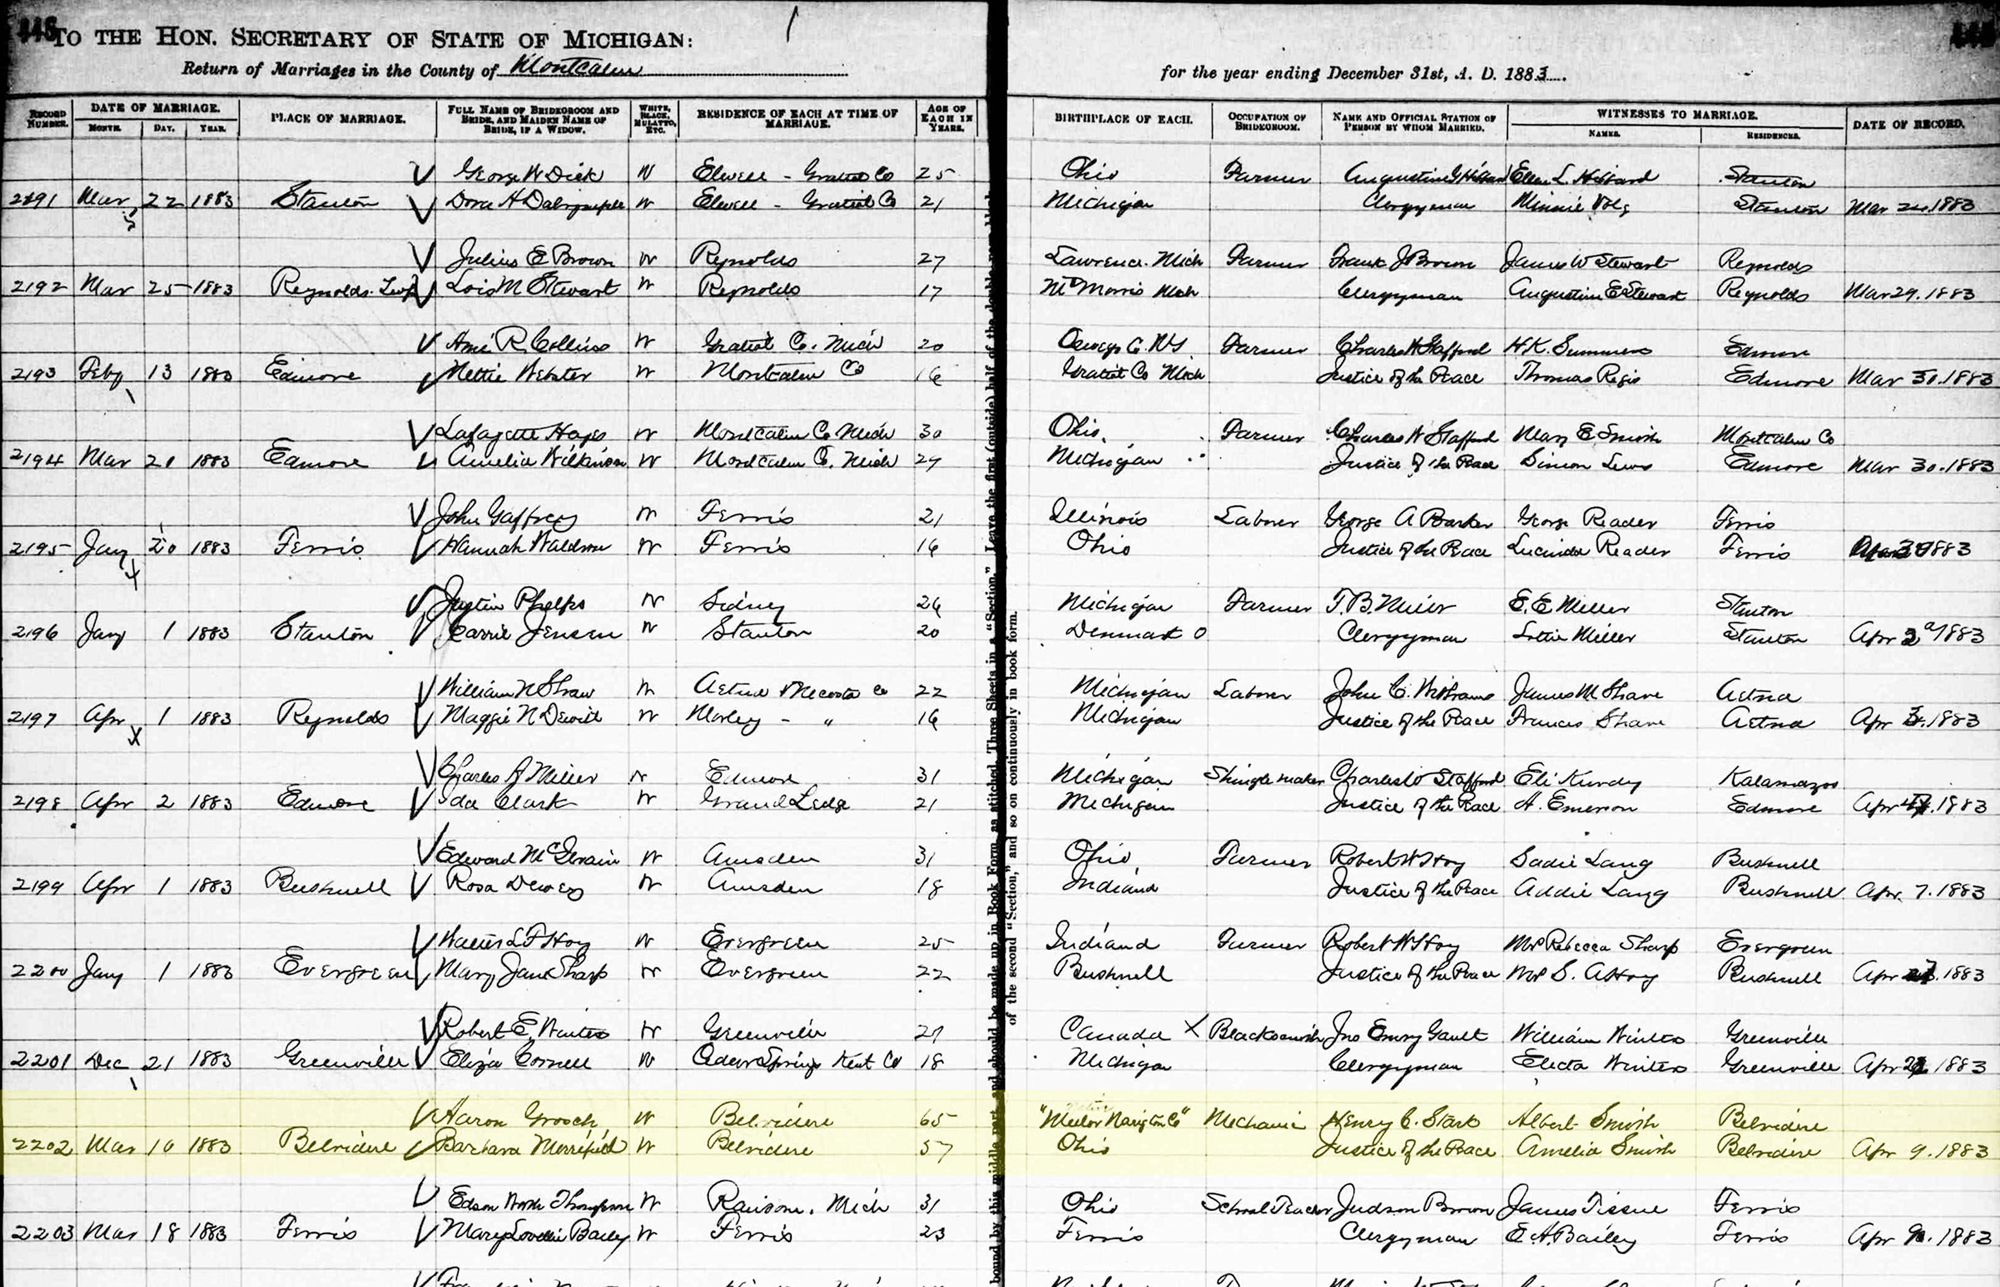 446
TO THE HON. SECRETARY OF STATE OF MICHIGAN:
Return of Marriages in the County of Montcalm
for the year ending December 31st, A. D. 1883
RECORD NUMBER. DATE OF MARRIAGE. MONTH. DAY. YEAR. PLACE OF MARRIAGE. FULL NAME OF BRIDEGROOM AND BRIDE, AND MAIDEN NAME OF BRIDE, IF A WIDOW. WHITE, BLACK, MULATTO, ETC. RESIDENCE OF EACH AT TIME OF MARRIAGE. AGE OF EACH IN YEARS. BIRTHPLACE OF EACH. OCCUPATION OF BRIDEGROOM. NAME AND OFFICIAL STATION OF PERSON BY WHOM MARRIED. WITNESSES TO MARRIAGE. NAMES. RESIDENCES. DATE OF RECORD.
George W Dick W Elwell - Gratiot Co 25 Ohio Farmer Augustine G Hibbard Ellen L. Hibbard Stanton
2191 Mar 22 1883 Stanton Dora H Dalrymple W Elwell - Gratiot Co 21 Michigan Clergyman Minnie Stanton Mar 1883
Julius E Brown W Reynolds 27 Lawrence. Mich Farmer Frank J Brown James W Stewart Reynolds
2192 Mar 25 1883 Reynolds Twp Lois M Stewart W Reynolds 17 Mt Morris Mich Clergyman Augustine E Stewart Reynolds Mar 29. 1883
R. Collins W Gratiot Co. Mich 20 Oswego Co. NY. Farmer Charles W Stafford H. K. Summers Edmore
2193 Feby 13 1883 Edmore Nettie Webster W Montcalm Co 16 Gratiot Co Mich Justice of the Peace Thomas Regis Edmore Mar 30. 1883
Lafayette Hays W Montcalm Co Mich 30 Ohio. Farmer Charles W Stafford Mary E Smith Montcalm Co
2194 Mar 20 1883 Edmore Amelia Wilkinson W Montcalm Co. Mich 29 Michigan Justice of the Peace Simon Edmore Mar 30. 1883
John Gaffney W Ferris 21 Illinois Laborer George A Barker George Reader Ferris
2195 Jany 20 1883 Ferris Hannah Waldron W Ferris 16 Ohio Justice of the Peace Lucinda Reader Ferris 1883
Justin Phelps W Sidney 26 Michigan Farmer E. E. Miller Stanton
2196 Jany 1 1883 Stanton Carrie Jensen W Stanton 20 Denmark O Clergyman Lottie Miller Stanton Apr 2d 1883
William N Shaw W Aetna Mecosta Co 22 Michigan Laborer John C. Williams James M Shane Aetna
2197 Apr 1 1883 Reynolds Maggie N W Morley - " 16 Michigan Justice of the Peace Frances Shane Aetna Apr 1883
Charles J Miller W Edmore 31 Michigan Shingle maker Charles W Stafford Eli Kalamazoo
2198 Apr 2 1883 Edmore Ida Clark W Grand Ledge 21 Michigan Justice of the Peace A. Emerson Edmore Apr 1883
Edward W Amsden 31 Ohio Farmer Robert W Hoy Sadie Lang Bushnell
2199 Apr 1 1883 Bushnell Rosa Dewey W Amsden 18 Indiana Justice of the Peace Addie Lang Bushnell Apr. 7. 1883
Walter L F Hoy W Evergreen 25 Indiana Farmer Robert W Hoy Mrs Rebecca Sharp Evergreen
2200 Jany 1 1883 Evergreen Mary Jane Sharp W Evergreen 22 Bushnell Justice of the Peace Mrs S. A Hoy Bushnell Apr 1883
Robert E. Winters W Greenville 27 Canada X Blacksmith Jno Emory Gault William Winters Greenville
2201 Dec 21 1883 Greenville Eliza Cornell W Springs Kent Co 18 Michigan Clergyman Electa Winters Greenville Apr 1883
Aaron Grooch W Belvidere 65 Mechanic Henry C. Stark Albert Smith Belvidere
2202 Mar 10 1883 Belvidere Barbara Merrifield W Belvidere 57 Ohio Justice of the Peace Amelia Smith Belvidere Apr 9. 1883
Edson Thompson W Ransom. Mich 31 Ohio School Teacher Judson Brown James Tissue Ferris
2203 Mar 18 1883 Ferris Mary Bailey W Ferris 23 Ferris Clergyman E. A. Bailey Ferris Apr 1883
bound by this middle part, and should be made up in Book Form, as stitched, Three Sheets in a "Section." Leave the first (outside) half of the
of the second "Section," and so on continuously in book form.